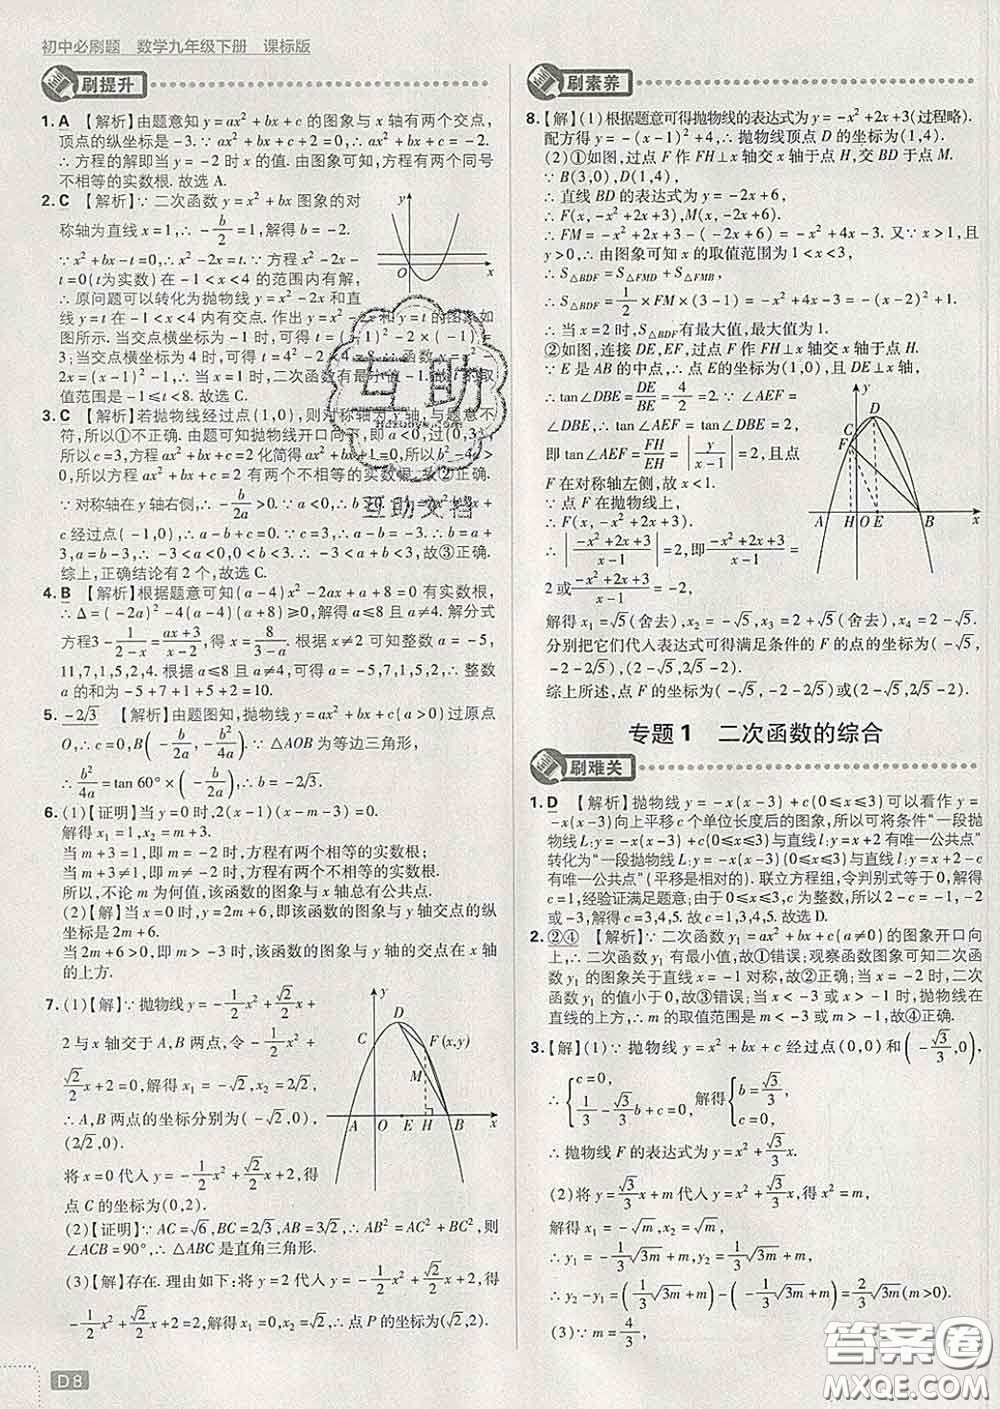 初中必刷题　数学九年级下册　课标版
刷提升
1. A 【解析】由题意知 y=ax²+bx+c 的图象与 x 轴有两个交点，
顶点的纵坐标是 -3. ∵ 方程 ax²+bx+c+2=0，∴ ax²+bx+c=-2,
∴ 方程的解即当 y=-2 时 x 的值. 由图象可知，方程有两个同号
不相等的实数根. 故选 A.
2. C 【解析】∵ 二次函数 y=x²+bx 图象的对
称轴为直线 x=1，∴ -b/2=1，解得 b=-2.
∵ x²+bx-t=0，∴ x²-2x=t. ∵ 一元二次方程
x²+bx-t=0(t为实数)在 -1<x<4 的范围内有解，
∴ 原问题可以转化为抛物线 y=x²-2x 和直
线 y=t 在 -1<x<4 内有交点. 作出 y=x²-2x 和 y=t 的图象如
图所示. 当交点横坐标为 -1 时，可得 t=(-1)²-2×(-1)=
3；当交点横坐标为 4 时，可得 t=4²-2×4=8. ∵ 函数 y=x²-
2x=(x-1)²-1，∴ 函数有最小值 -1. 故 t 的取
值范围是 -1≤t<8. 故选 C.
3. C 【解析】若抛物线经过点(1,0)，则对称轴为 y 轴，与题意不
符，所以①不正确. 由题可知抛物线开口向下，即 a<0，过(0,3)，
所以 c=3，方程 ax²+bx+c=2 化简得 ax²+bx+1=0，所以 b²-4a>
0，所以方程 ax²+bx+c=2 有两个不相等的实数根. 故②正确.
∵ 对称轴在 y 轴右侧，∴ -b/2a>0. ∵ a<0，∴ b>0. ∵ y=ax²+bx+
c 经过点(-1,0)，∴ a-b+c=0. ∵ c=3，∴ a-b=-3，∴ b=a+
3，∴ -3<a<0,0<b<3. ∴ -3<a+b<3，故③正确.
综上，正确结论有 2 个，故选 C.
4. B 【解析】根据题意可知(a-4)x²-2ax+a+8=0 有实数根，
∴ Δ=(-2a)²-4(a-4)(a+8)≥0，解得 a≤8 且 a≠4. 解分式
方程3-1/(2-x)=(ax+3)/(x-2)，得 x=8/(3-a). 根据 x≠2 可知整数 a=-5,
11,7,1,5,2,4. 根据 a≤8 且 a≠4，可得 a=-5,7,1,5,2，∴ 整数
a 的和为 -5+7+1+5+2=10.
5. -2√3 【解析】由题图知，抛物线 y=ax²+bx+c(a>0)过原点
O，∴ c=0，B(-b/2a, -b²/4a). ∵ △AOB 为等边三角形，
∴ b²/4a=tan 60°×(-b/2a)，∴ b=-2√3.
6. (1)【证明】当 y=0时，2(x-1)(x-m-3)=0.
解得 x₁=1, x₂=m+3.
当 m+3=1，即 m=-2 时，方程有两个相等的实数根；
当 m+3≠1，即 m≠-2 时，方程有两个不相等的实数根.
所以，不论 m 为何值，该函数的图象与 x 轴总有公共点.
(2)【解】当 x=0 时，y=2m+6，即该函数的图象与 y 轴交点的纵
坐标是 2m+6.
当 2m+6>0，即 m>-3 时，该函数的图象与 y 轴的交点在 x 轴
的上方.
7. (1)【解】∵ 抛物线 y=-1/2x²+√2/2x+
2 与 x 轴交于 A，B 两点，令 -1/2x²+
√2/2x+2=0，解得 x₁=-√2，x₂=2√2.
∴ A，B 两点的坐标分别为(-√2,0)，
(2√2,0).
将 x=0 代入 y=-1/2x²+√2/2x+2，得
点 C 的坐标为(0,2).
(2)【证明】∵ AC=√6，BC=2√3，AB=3√2，∴ AB²=AC²+BC²，则
∠ACB=90°，∴ △ABC 是直角三角形.
(3)【解】存在. 理由如下：将 y=2 代入 y=-1/2x²+√2/2x+2，得
-1/2x²+√2/2x+2=2，解得 x₁=0，x₂=√2，∴ 点 P 的坐标为(√2,2).
D8
刷素养
8. 【解】(1)根据题意可得抛物线的表达式为 y=-x²+2x+3(过程略).
配方得 y=-(x-1)²+4，∴ 抛物线顶点 D 的坐标为(1,4).
(2)①如图，过点 F 作 FH⊥x 轴交 x 轴于点 H，交 BD 于点 M.
∵ B(3,0)，D(1,4)，
∴ 直线 BD 的表达式为 y=-2x+6，
∴ F(x,-x²+2x+3)，M(x,-2x+6).
∴ FM=-x²+2x+3-(-2x+6)=-x²+4x-3. 又∵ x>1，且
y>0，∴ 由图象可知 x 的取值范围为 1<x<3，
∴ S△BDF=S△FMD+S△FMB，
∴ S△BDF=1/2×FM×(3-1)=-x²+4x-3=-(x-2)²+1.
∴ 当 x=2 时，S△BDF有最大值，最大值为 1.
②如图，连接 DE，EF，过点 F 作 FH⊥x 轴交 x 轴于点 H.
∵ E 是 AB 的中点，∴ 点 E 的坐标为(1,0)，且 DE⊥x 轴，
∴ tan∠DBE=DE/BE=4/2=2. ∵ ∠AEF=
∠DBE，∴ tan∠AEF=tan∠DBE=2，
即 tan∠AEF=FH/EH=|y/(x-1)|=2. ∵ 点
F 在对称轴左侧，故 x<1.
∵ 点 F 在抛物线上，
∴ F(x,-x²+2x+3).
∴ |(-x²+2x+3)/(x-1)|=2，即(-x²+2x+3)/(x-1)=
2或(-x²+2x+3)/(x-1)=-2，
解得 x₁=√5(舍去)，x₂=-√5，x₃=2+√5(舍去)，x₄=2-√5.
分别把它们代入表达式可得满足条件的 F 的点的坐标为(-√5,
-2-2√5)，(2-√5,2√5-2).
综上所述，点 F 的坐标为(-√5,-2-2√5)或(2-√5,2√5-2).
专题1　二次函数的综合
刷难关
1. D 【解析】抛物线 y=-x(x-3)+c(0≤x≤3)可以看作 y=
-x(x-3)向上平移 c 个单位长度后的图象，所以可将条件“一段抛
物线 L:y=-x(x-3)+c(0≤x≤3)与直线 l:y=x+2 有唯一公共点”
转化为“一段抛物线 L:y=-x(x-3)(0≤x≤3)与直线 l:y=x+2-c
有唯一公共点”(平移是相对的). 联立方程组，令判别式等于 0，解得
c=1，经验证满足题意；由于 0≤x≤3，所以直线经过整点时，2-c=-1，-2
或 -3，解得 c=3,4,5. 故 c=1,3,4,5. 故选 D.
2. ②④ 【解析】∵ 二次函数 y₁=ax²+bx+c(a≠0)的图象开口向
上，∴ 二次函数 y₁ 有最小值，故①错误；观察函数图象可知二次函
数 y₁ 的图象关于直线 x=-1 对称，故②正确；当 x=-2 时，二次
函数 y₁ 的值小于 0，故③错误；当 x≤-3 或 x≥-1 时，抛物线在
直线的上方，∴ m 的取值范围是 m≤-3 或 m≥-1，故④正确.
3. 【解】(1)∵ 抛物线 y=x²+bx+c 经过点(0,0)和(-√3/3,0)，
∴ {c=0, 1/3-√3/3b+c=0, 解得{b=√3/3, c=0,
∴ 抛物线 F 的表达式为 y=x²+√3/3x.
(2)将 y=√3/3x+m 代入 y=x²+√3/3x，得 x²=m，
解得 x₁=-√m，x₂=√m，
∴ y₁=-1/3√3m+m，y₂=1/3√3m+m，
∴ y₂-y₁=(1/3√3m+m)-(-1/3√3m+m)=2/3√3m(m>0).
(3)∵ m=4/3，
互助
互助文档
答案圈
MXQE.COM